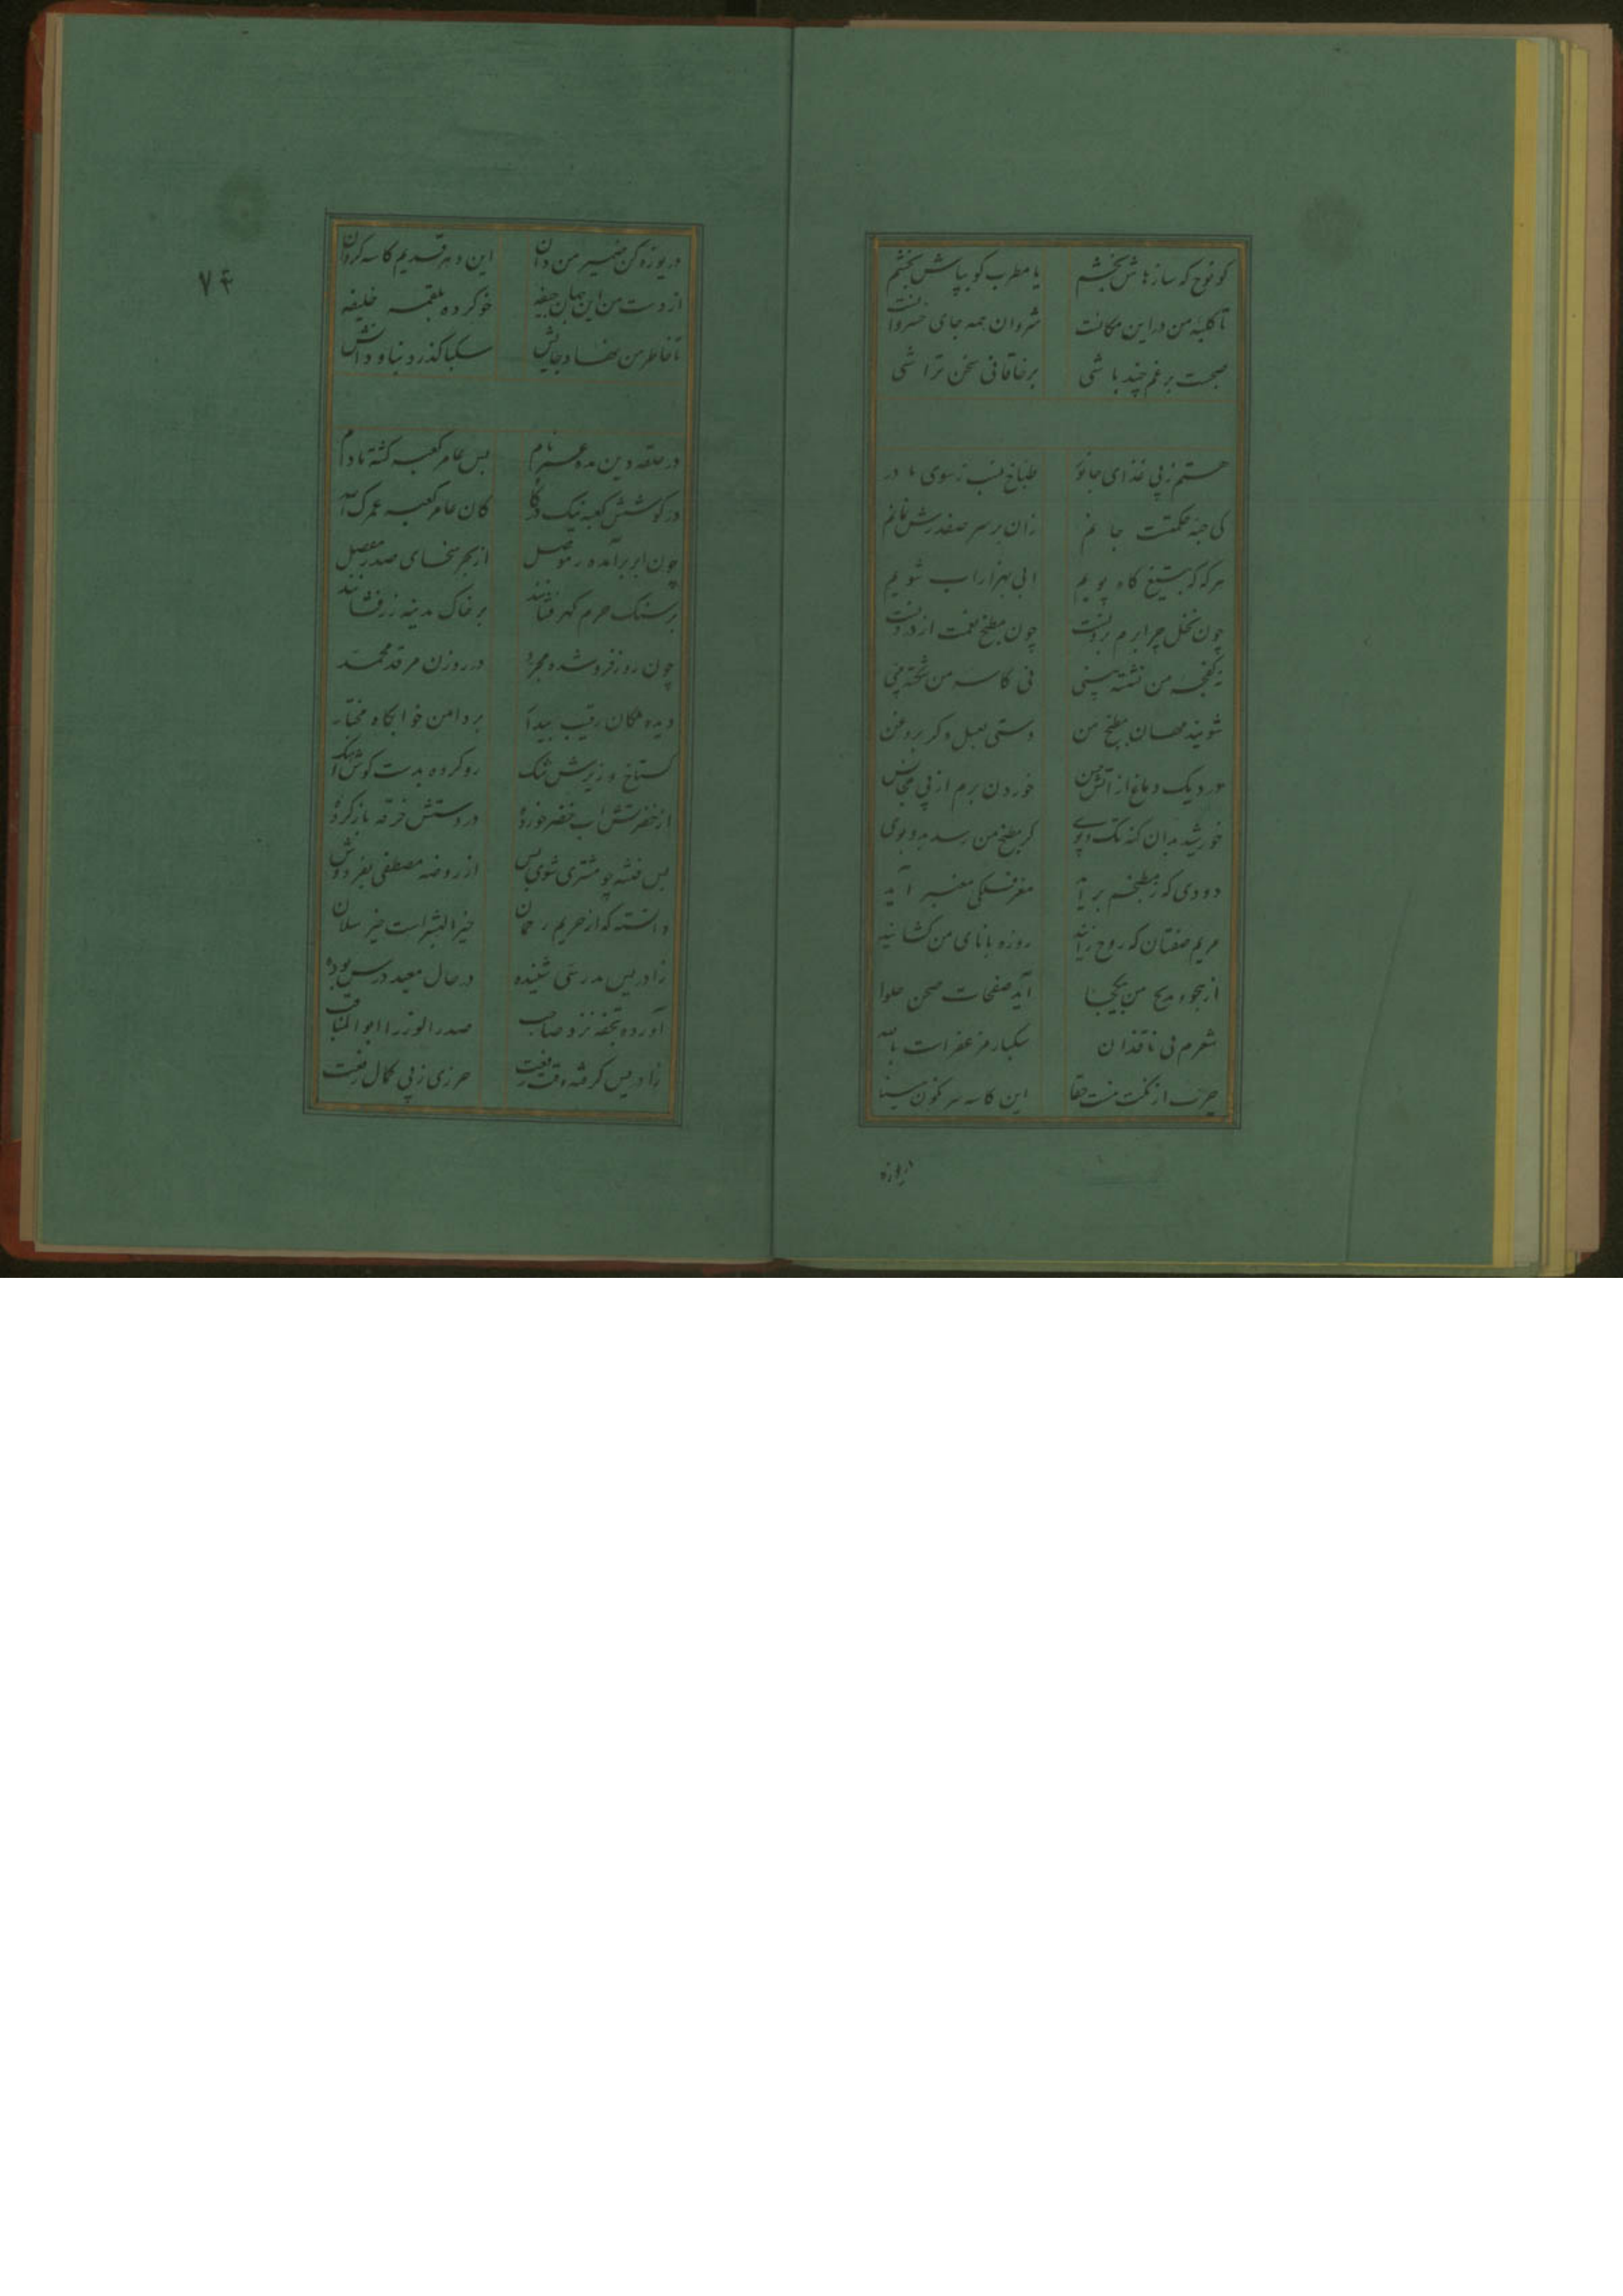 کو نوح که سازهاش بخشم یا مطرب کو بپاش بخشم
تا کلبه من در این مکانست شروان همه جای خسروانست
صحبت بر غم چند باشی بر خاقانی سخن تراشی
هستم ز پی غذای جانور طباخ نسب ز سوی مادر
کی جنه حکمتست جانم زان بر سر صفدرش
هر که که بتیغ کاه پویم ابی بهزار اب شویم
چون نخل چرا برم بر دست چون مطبخ نعمت از
کفچه من نشسته بینی فی کاسه من شخته
شویند مهمان مطبخ من دستی بعسل دگر بروغن
در دیک دماغ از آتش خوردن برم از پی
خورشید بدان کند تک و پوی کز مطبخ من رسد بدو بوی
دودی که ز مطبخم برآید مغز فلکی معنبر آید
مریم صفتان که روح زایند روزه بابای من کشایند
از هجو و مدیح من بیکجا آید صفحات صحن حلوا
شعرم فی ناقدان سکبا مزعفر است بالله
چرب از نکت منست حقا این کاسه سر نکون مینا
دریوزه
۷۴
دریوزه کن ضمیر من دان این دهر قدیم کاسه کردان
از دست من این جهان جیفه خو کرده بلقمه خلیفه
تا خاطر من نهاد سکبا کذرد نبا و
در حلقه دین مده عمر نام بس عامر کعبه کشته مادام
در کوشش کعبه نیک کان عامر کعبه عمرک الله
چون ابر برآمده ز موصل از بحر سخای صدر مفضل
بر سنک حرم کهر فشانند بر خاک مدینه زر فشانند
چون روز فرو شده مجرد در روزن مرقد محمد
دیده مکان رقیب بیدار بر دامن خوابکاه مختار
کستاخ و زیرش رو کرده بدست کوش
از خضرتش اب خضر خورده در دستش خرقه باز کرده
بس فتنه چو مشتری شوی پس از روضه مصطفی
دانسته که از حریم رحمان خیر البشر است خیر سلان
زادریس مدرسی شنیده در حال معید درس بوده
آورده تحفه نزد صاحب صدر الوزرا ابو المناقب
زادریس کرفته وقت رفعت حرزی ز پی کمال رفعت